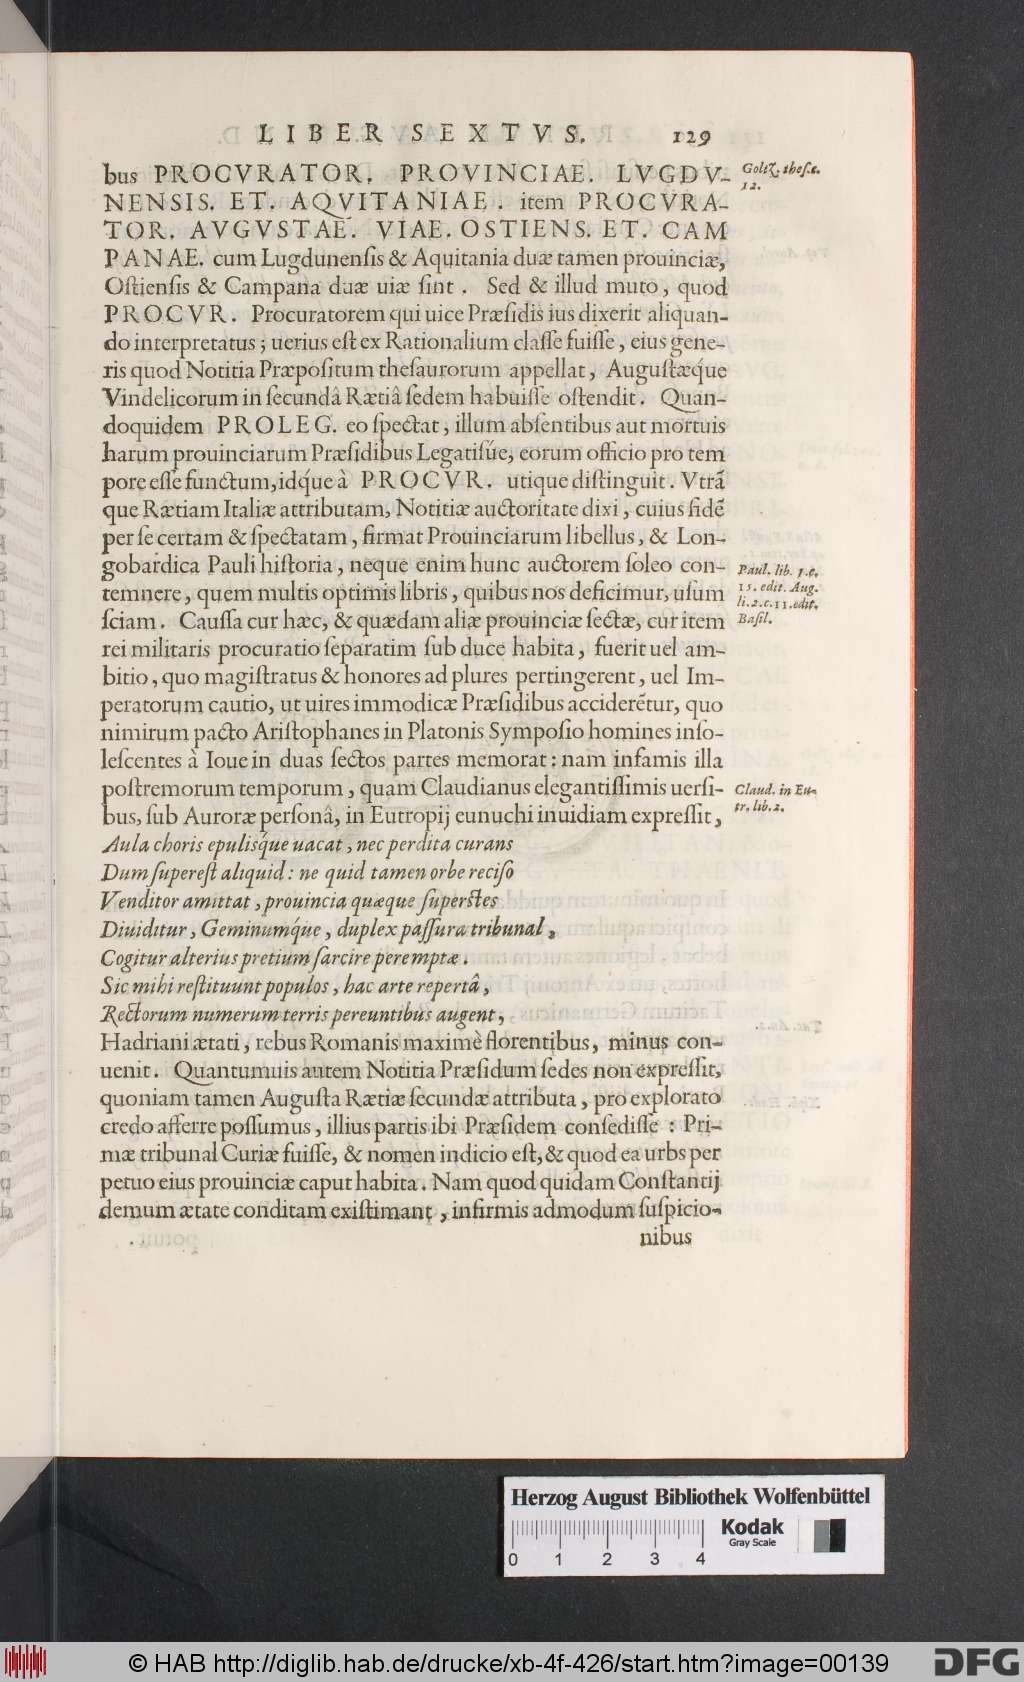 LIBER SEXTVS. 129
bus PROCVRATOR. PROVINCIAE. LVGDV-
NENSIS. ET. AQVITANIAE. item PROCVRA-
TOR. AVGVSTAE. VIAE. OSTIENS. ET. CAM
PANAE. cum Lugdunenſis & Aquitania duæ tamen prouinciæ,
Oſtienſis & Campana duæ uiæ ſint. Sed & illud muto, quod
PROCVR. Procuratorem qui uice Præſidis ius dixerit aliquan-
do interpretatus; uerius eſt ex Rationalium claſſe fuiſſe, eius gene-
ris quod Notitia Præpoſitum theſaurorum appellat, Auguſtæq́ue
Vindelicorum in ſecundâ Rætiâ ſedem habuiſſe oſtendit. Quan-
doquidem PROLEG. eo ſpectat, illum abſentibus aut mortuis
harum prouinciarum Præſidibus Legatiſúe, eorum officio pro tem
pore eſſe functum, idq́ue à PROCVR. utique diſtinguit. Vtrã
que Rætiam Italiæ attributam, Notitiæ auctoritate dixi, cuius fidẽ
per ſe certam & ſpectatam, firmat Prouinciarum libellus, & Lon-
gobardica Pauli hiſtoria, neque enim hunc auctorem ſoleo con-
temnere, quem multis optimis libris, quibus nos deficimur, uſum
ſciam. Cauſſa cur hæc, & quædam aliæ prouinciæ ſectæ, cur item
rei militaris procuratio ſeparatim ſub duce habita, fuerit uel am-
bitio, quo magiſtratus & honores ad plures pertingerent, uel Im-
peratorum cautio, ut uires immodicæ Præſidibus acciderẽtur, quo
nimirum pacto Ariſtophanes in Platonis Sympoſio homines inſo-
leſcentes à Ioue in duas ſectos partes memorat: nam infamis illa
poſtremorum temporum, quam Claudianus elegantiſſimis uerſi-
bus, ſub Auroræ perſonâ, in Eutropij eunuchi inuidiam expreſſit,
Aula choris epulisq́ue uacat, nec perdita curans
Dum ſupereſt aliquid: ne quid tamen orbe reciſo
Venditor amittat, prouincia quæque ſuperſtes
Diuiditur, Geminumq́ue, duplex paſſura tribunal,
Cogitur alterius pretium ſarcire peremptæ.
Sic mihi reſtituunt populos, hac arte repertâ,
Rectorum numerum terris pereuntibus augent,
Hadriani ætati, rebus Romanis maximè florentibus, minus con-
uenit. Quantumuis autem Notitia Præſidum ſedes non expreſſit,
quoniam tamen Auguſta Rætiæ ſecundæ attributa, pro explorato
credo afferre poſſumus, illius partis ibi Præſidem conſediſſe: Pri-
mæ tribunal Curiæ fuiſſe, & nomen indicio eſt, & quod ea urbs per
petuo eius prouinciæ caput habita. Nam quod quidam Conſtantij
demum ætate conditam exiſtimant, infirmis admodum ſuſpicio-
nibus
Goltz. theſ. c.
12.
Paul. lib. 1. c.
15. edit. Aug.
li. 2. c. 11. edit.
Baſil.
Claud. in Eu-
tr. lib. 2.
Herzog August Bibliothek Wolfenbüttel
0 1 2 3 4
Kodak
Gray Scale
© HAB http://diglib.hab.de/drucke/xb-4f-426/start.htm?image=00139
DFG